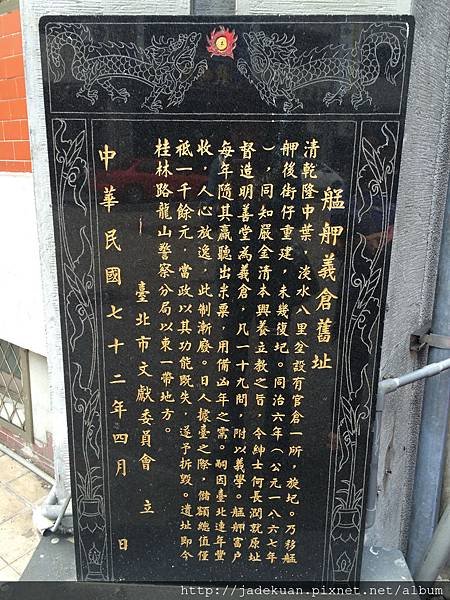 艋舺義倉舊址
清乾隆中葉，淡水八里坌設有官倉一所，旋圮。乃移艋
舺後街仔重建，未幾復圮。同治六年（公元一八六七年
），同知嚴金清本興養立教之旨，令紳士何長潤就原址
督造明善堂為義倉，凡一十九間，附以義學。艋舺富戶
每年隨其贏聽出米粟，用備凶年之需。嗣因臺北連年豐
收，人心放逸，此制漸廢。日人據臺之際，儲穀總值僅
祗一千餘元，當政以其功能既失，遂予拆毀。遺址即今
桂林路龍山警察分局以東一帶地方。
臺北市文獻委員會 立
中華民國七十二年四月 日
http://jadekuan.pixnet.net/album